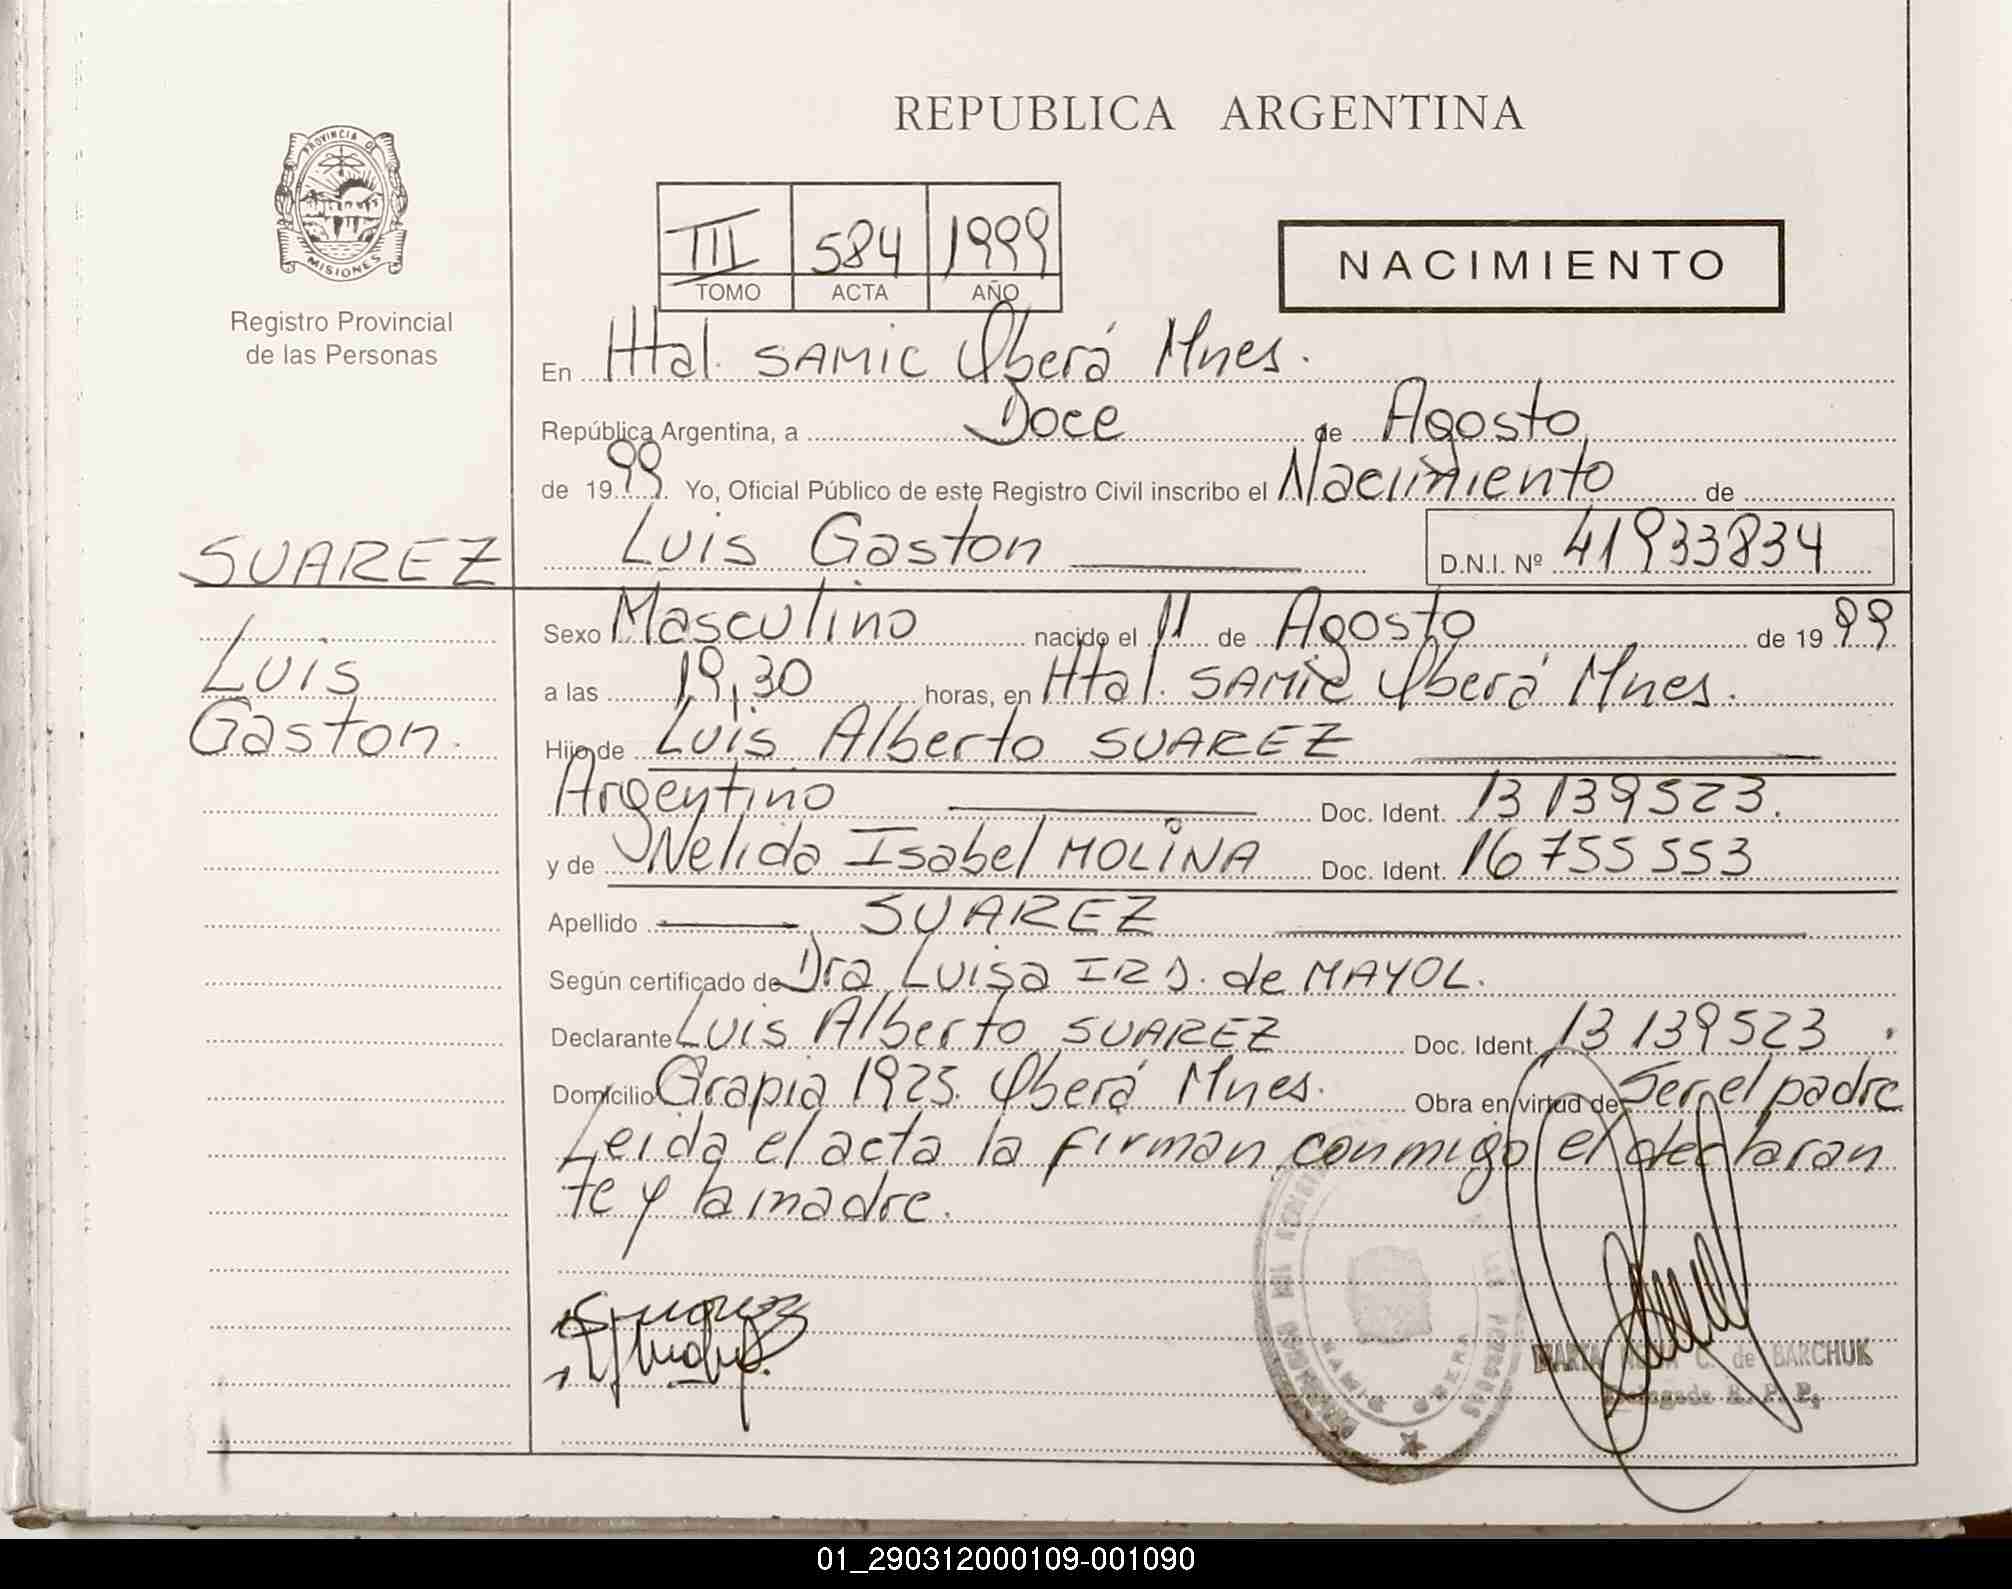 PROVINCIA DE
MISIONES
Registro Provincial
de las Personas
SUAREZ
Luis
Gaston.
REPUBLICA ARGENTINA
III 584 1999
TOMO ACTA AÑO
NACIMIENTO
En Htal. SAMIC Oberá Mnes.
República Argentina, a Doce de Agosto
de 1999. Yo, Oficial Público de este Registro Civil inscribo el Nacimiento de
Luis Gaston D.N.I. Nº 41933834
Sexo Masculino nacido el 11 de Agosto de 1999
a las 19,30 horas, en Htal. SAMIC Oberá Mnes.
Hijo de Luis Alberto SUAREZ
Argentino Doc. Ident. 13139523.
y de Nelida Isabel MOLINA Doc. Ident. 16755553
Apellido SUAREZ
Según certificado de Dra Luisa de MAYOL.
Declarante Luis Alberto SUAREZ Doc. Ident. 13139523.
Domicilio Grapia 1925. Oberá Mnes. Obra en virtud de Ser el padre
Leida el acta la firman conmigo el declaran
te y la madre.
Suarez
MARTA C. de BARCHUK
Delegada R. P. P.
01_290312000109-001090